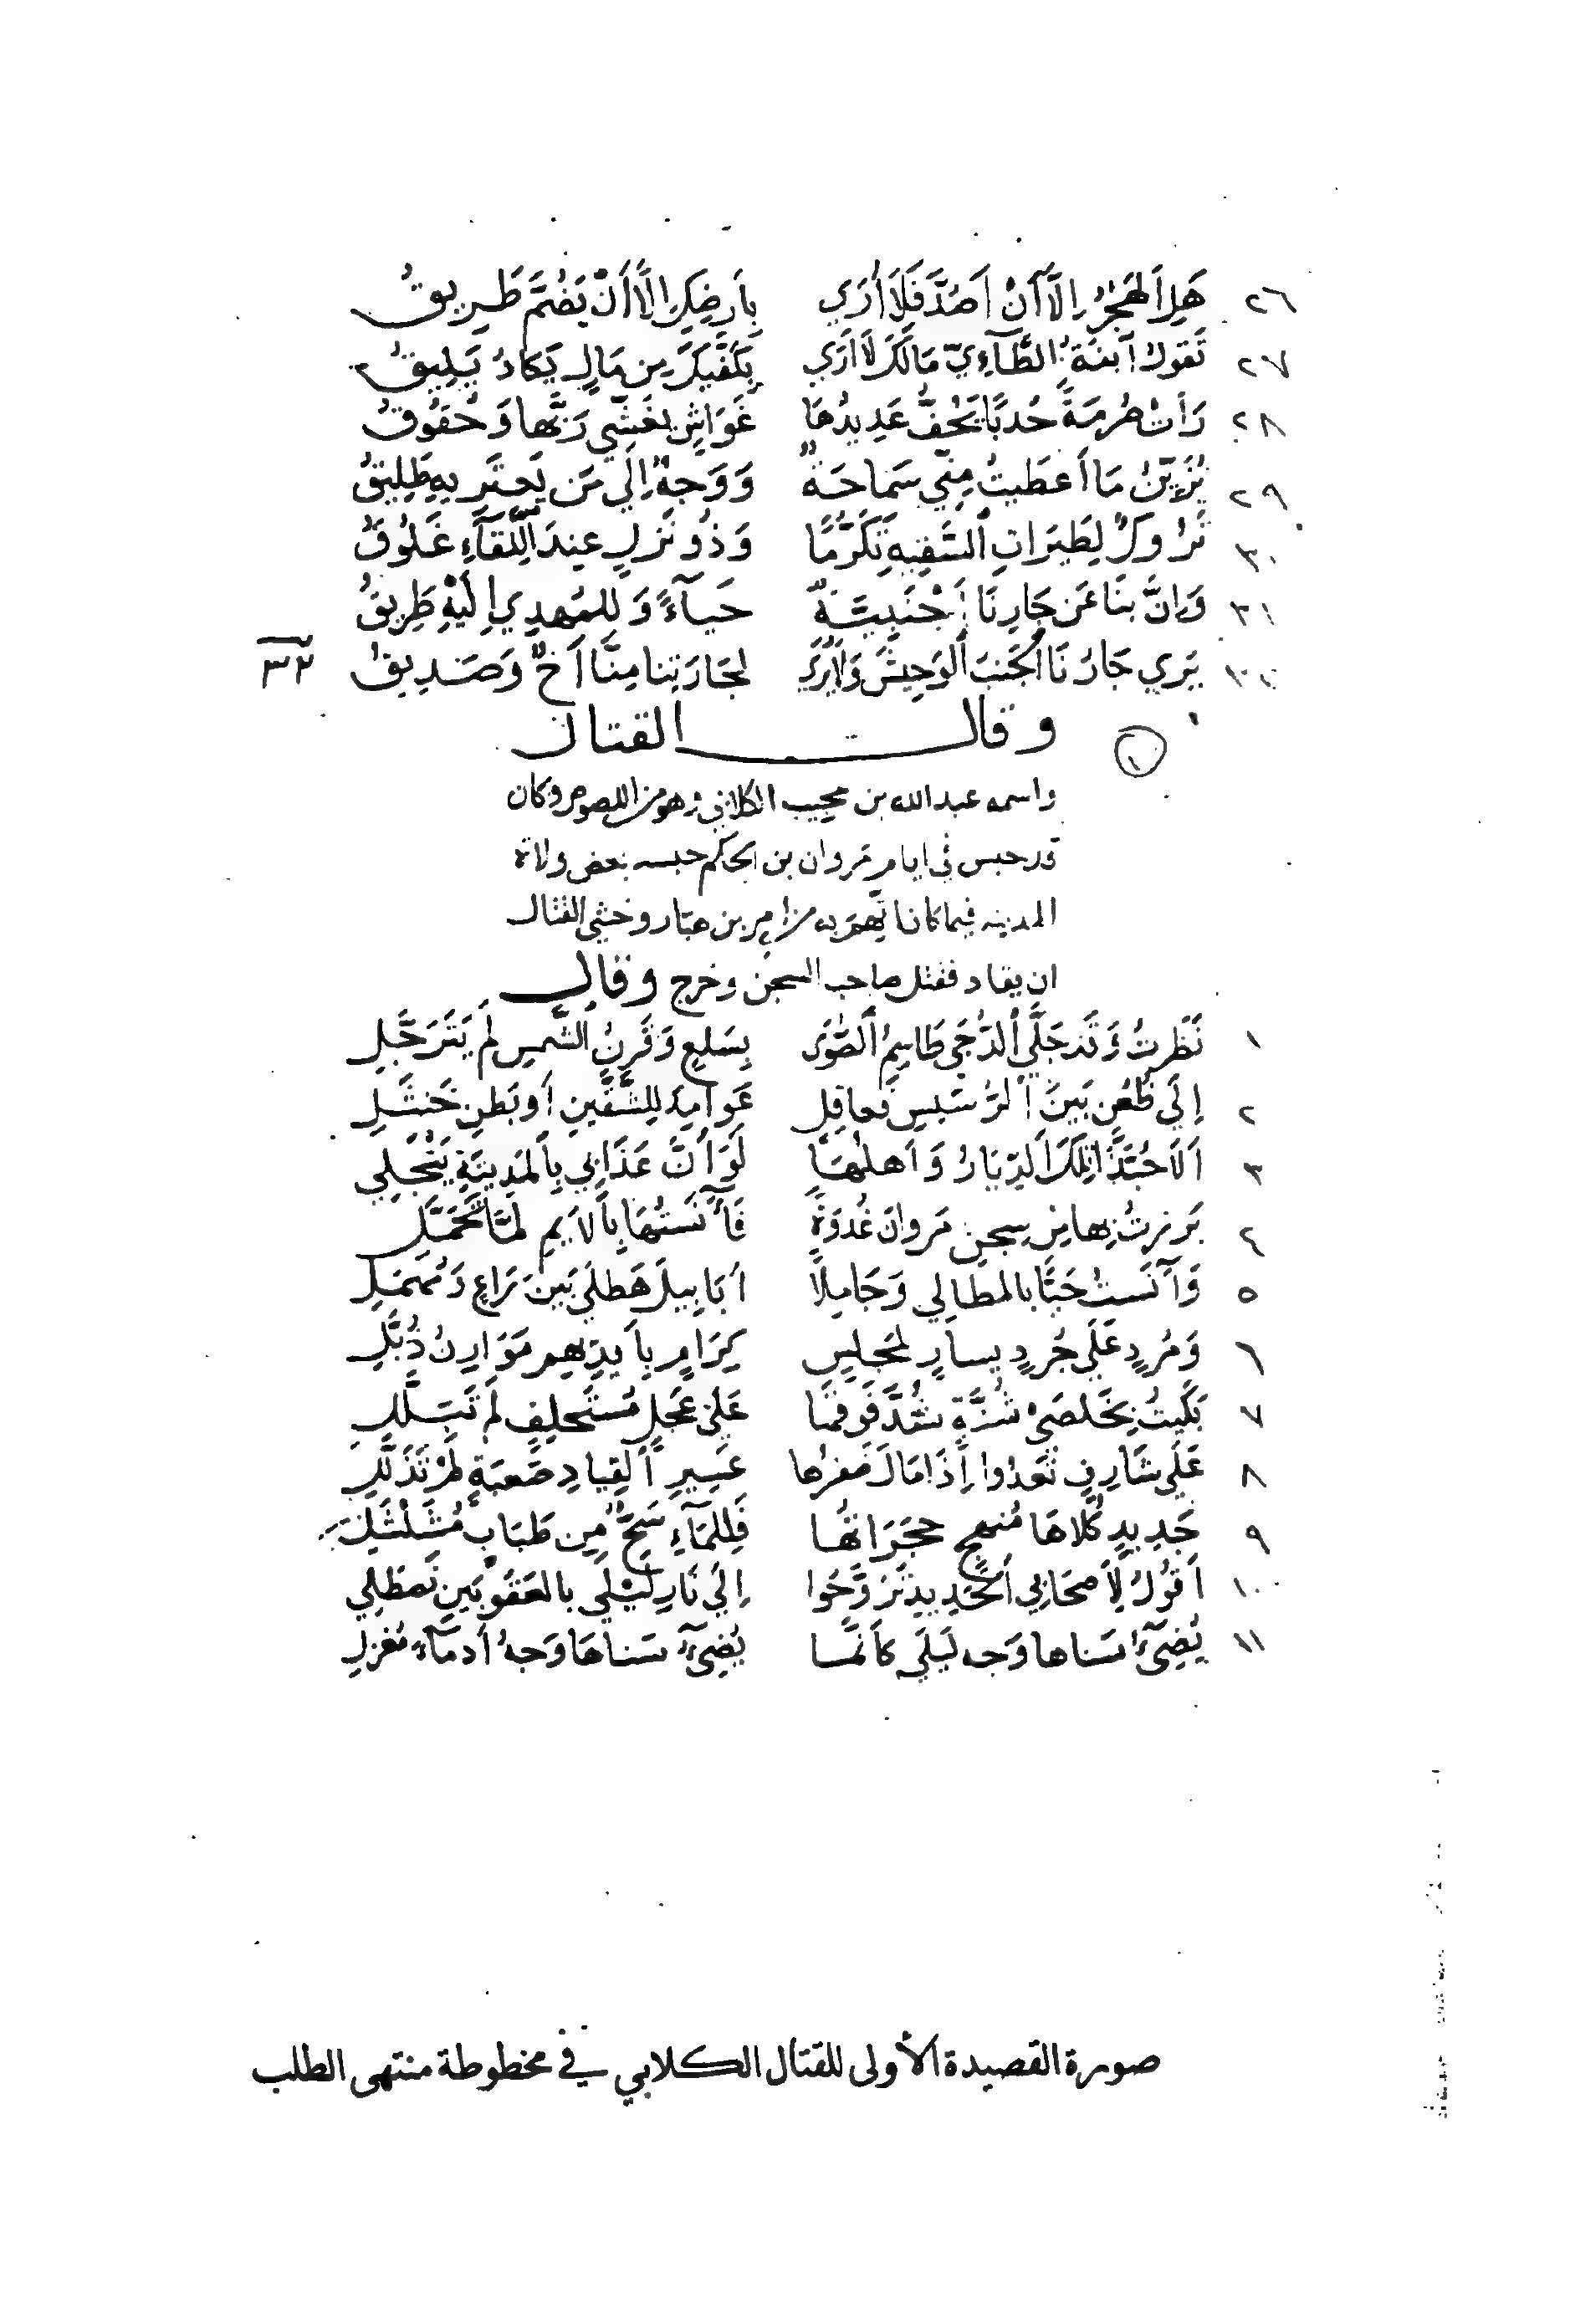 ٢٦ هَلِ الهَجْرُ إِلَّا أَنْ أَصُدَّ فَلَا أُرَى بِأَرضِكِ إِلَّا أَنْ يَضُمَّ طَرِيقُ
٢٧ تَقولُ ٱبنَةُ الطَّآءِيِّ مَالَكَ لَا أَرَى بِكَفَّيكَ مِن مَالٍ يَكَادُ يَلِيقُ
٢٨ رَأَت صِرمَةً حُدبًا يَحُفُّ عَدِيدُهَا غَوَاشٍ تغَشّي رَبَّها وَحُقُوقُ
٢٩ يُزَيِّنُ مَا أَعطَيتُ مِنّي سَمَاحَةٌ وَوَجهٌ إِلَى مَن يَعتَرِيهِ طَلِيقُ
٣٠ تَرُوكٌ لِطَيرَاتِ ٱلسَّفِيهِ تَكَرُّمًا وَذُو نَزَلٍ عِندَ ٱللِّقَآءِ غَلُوقُ
٣١ وَإِنَّ بِنَا عَن جَارِنَا أَجْنَبِيَّةً حَيَآءً وَلِلمُهدِي إِلَيْهِ طَرِيقُ
٣٢ يَرَى جَارُنَا الجَنبَ ٱلوَحِيشَ وَلَا يَرَى لِجَارَتِنا مِنَّا أَخٌ وَصَدِيقُ ٣٢
١ وقال القتال
واسمه عبد الله بن مجيب الكلابي وهو من اللصوص وكان
قد حبس في ايام مروان بن الحكم حبسه بعض ولاة
المدينه فيما كان اتّهم به من ابن هبّار وخشي القتال
ان يقاد فقتل صاحب السجن وخرج وقال
١ نَظَرتُ وَقَد جَلَّى ٱلدُّجَى طَاسِمُ ٱلصُّوَى بِسَلعٍ وَقَرنُ الشَّمسِ لَم يَتَرَجَّلِ
٢ إِلَى ظُعُنٍ بَينَ ٱلرُّسَيسِ فَعاقِلٍ عَوَامِدَ لِلشَّقَّينِ أَو بَطنِ خَنثَلِ
٣ أَلَا حَبَّذَا تِلكَ ٱلدِّيَارُ وَأَهلُهَا لَوَ أَنَّ عَذَابِي بِٱلمَدِينَةِ يَنْجَلِي
٤ بَرزتُ بِها مِن سِجنِ مَروانَ غُدوَةً فَآنَستُهَا بِٱلأَيمِ لَمَّا تَحَمَّلِ
٥ وَآنَستُ حَيًّا بالمَطالِي وَجَامِلًا أَبَابِيلَ هَطلَى بَينَ رَاعٍ وَمُهمَلِ
٦ وَمُردٍ عَلَى جُردٍ يسارٍ لمَجلِسٍ كِرَامٍ بِأَيدِيهِم مَوَارِنُ ذُبَّلِ
٧ بَكَيتُ بِخَلصَى شَنَّةٍ شُدَّ فَوقَهَا عَلَى عَجَلٍ مُستَخلِفٍ لَم تَبَلَّلِ
٨ عَلَى شَارِفٍ تَعدُوا إِذَا مَالَ ضَفرُها عَسِيرِ ٱلقِيادِ صَعبَةٍ لَمْ تَذَلَّلِ
٩ جَدِيدٍ كُلَاهَا مُنهِجٍ حَجَرَاتُها فَلِلمَآءِ سَحٌّ مِن طَبَابٍ مُشَلْشَلِ
١٠ أَقُولُ لِأَصحَابِي ٱلحَدِيدَ تَرَوَّحُوا إِلَى نَارِ لَيْلَى بالعَقُوبَينِ نَصطَلِي
١١ يُضِيءُ سَناها وَجه لَيلَى كَأَنَّما يُضِيءُ سَناهَا وَجهُ أَدمَآءَ مُغزِلِ
صورة القصيدة الأولى للقتال الكلابي في مخطوطة منتهى الطلب